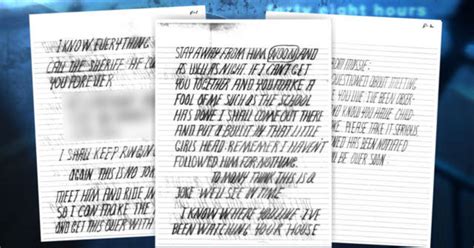 forty eight hours
I KNOW EVERYTHING
CALL THE SHERIFF HE
YOU FOREVER
I SHALL KEEP
AGAIN THIS IS NO
MEET HIM AND RIDE IN
SO I CAN MAKE THE
AND GET THIS OVER WITH
STAY AWAY FROM HIM NOON AND
AS WELL AS NIGHT IF I CAN'T GET
YOU TOGETHER AND YOU MAKE A
FOOL OF ME SUCH AS THE SCHOOL
HAS DONE I SHALL COME OUT THERE
AND PUT A BULLIT IN THAT LITTLE
GIRLS HEAD. REMEMBER I HAVEN'T
FOLLOWED HIM FOR NOTHING.
TO MANY THINK THIS IS A
JOKE WE'LL SEE IN TIME
I KNOW WHERE YOU LIVE I'VE
BEEN WATCHING YOUR HOUSE
MASSIE:
QUESTIONED ABOUT MEETING
YOU LIE. I'VE BEEN OBSER-
AND KNOW YOU HAVE CHILD-
PLEASE TAKE IT SERIOUS.
HAS BEEN NOTIFIED
BE OVER SOON.